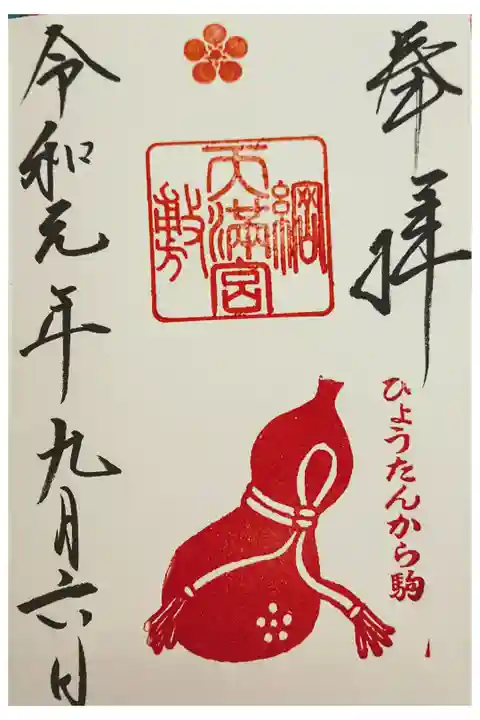 奉拝
ひょうたんから駒
綱敷天満宮
令和元年九月六日